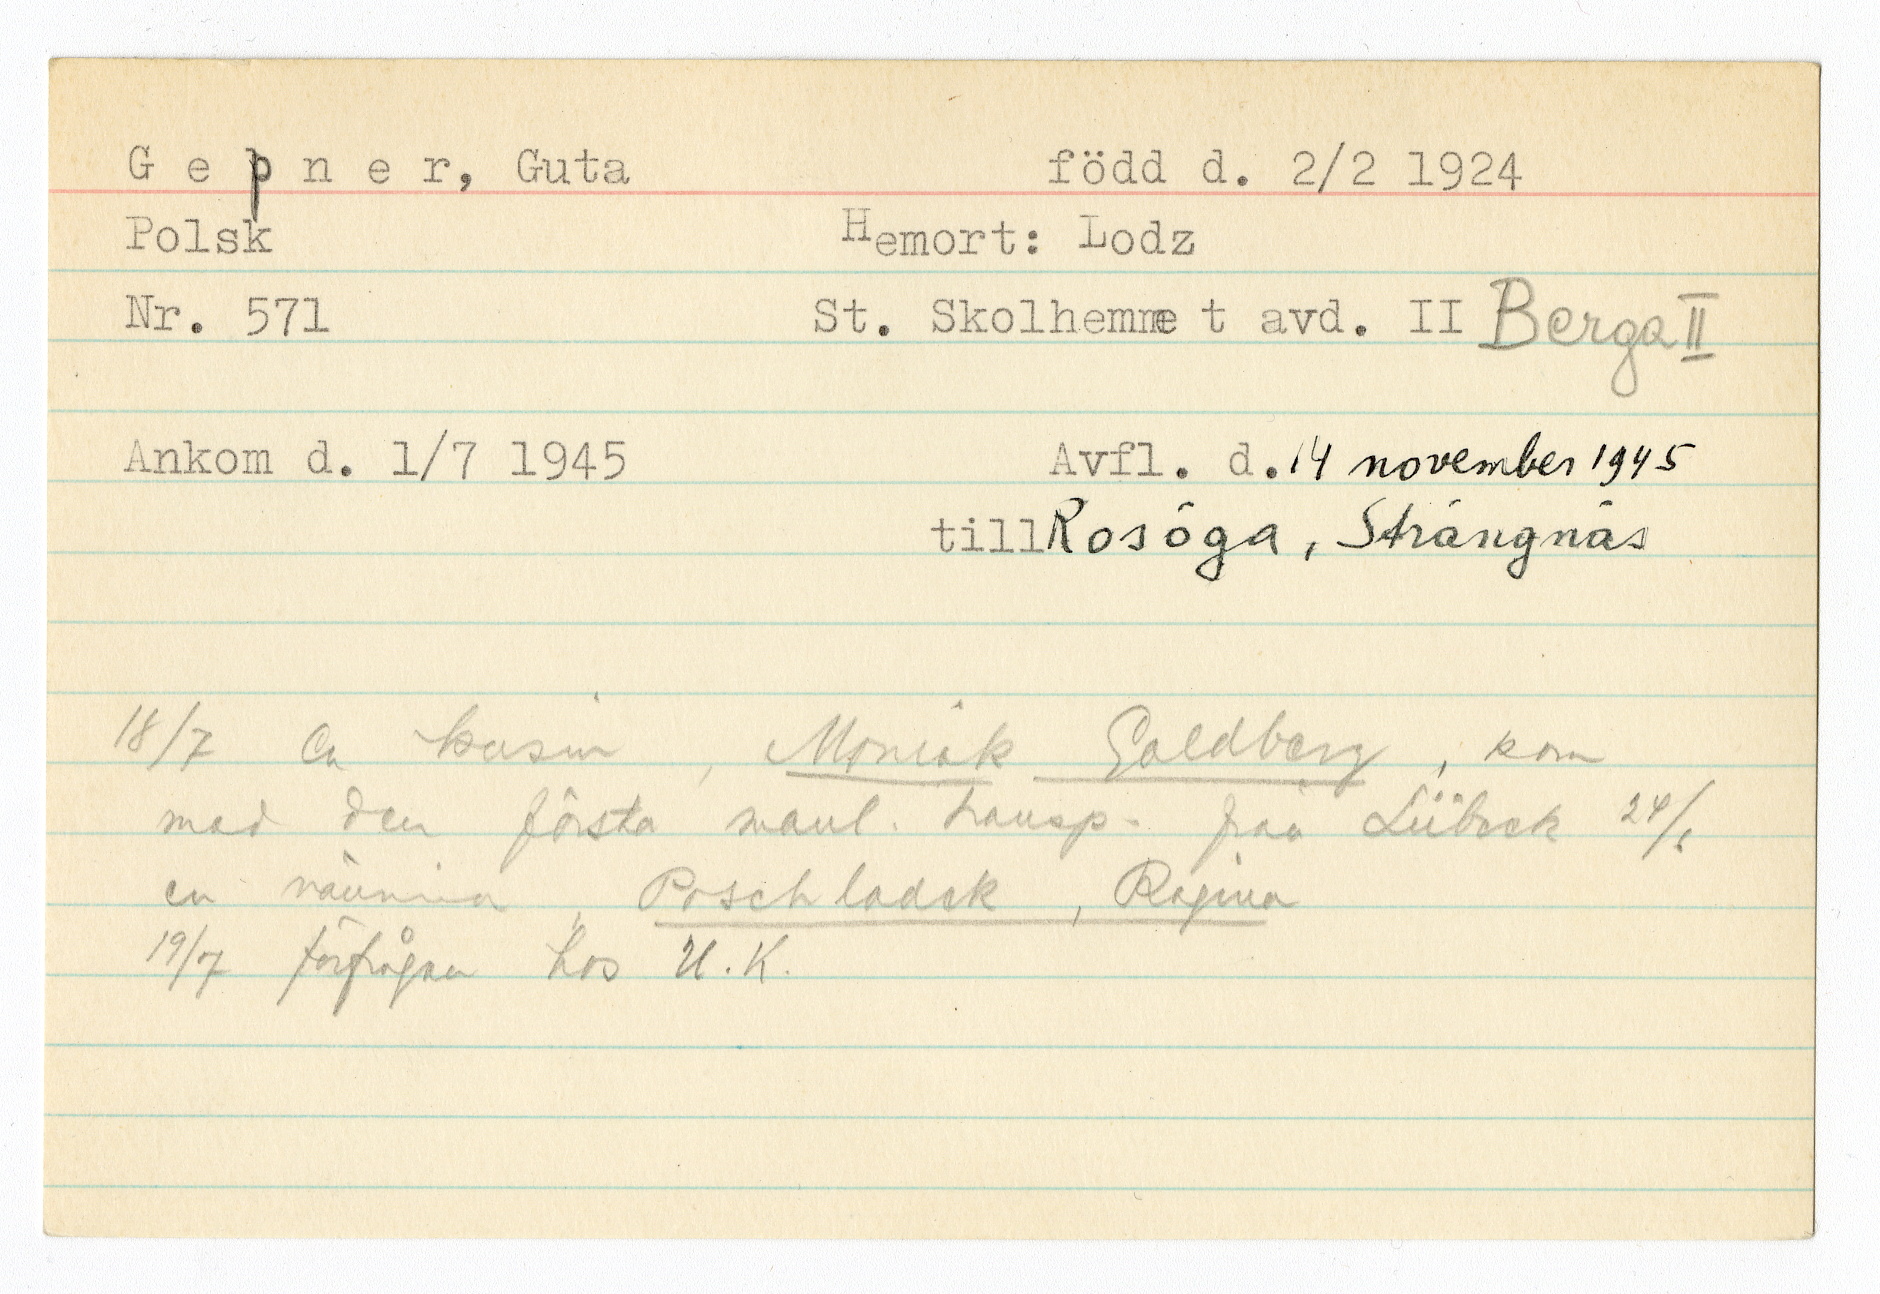 Gepner, Guta född d. 2/2 1924
Polsk Hemort: Lodz
Nr. 571 St. Skolhemmet avd. II Berga II
Ankom d. 1/7 1945 Avfl. d. 14 november 1945
till Rosöga, Strängnäs
18/7 En kusin, Moniek Goldberg, kom
med den första manl. transp. från Lübeck 24/6
en väninna, Poschladek, Regina
19/7 förfrågan hos U.K.